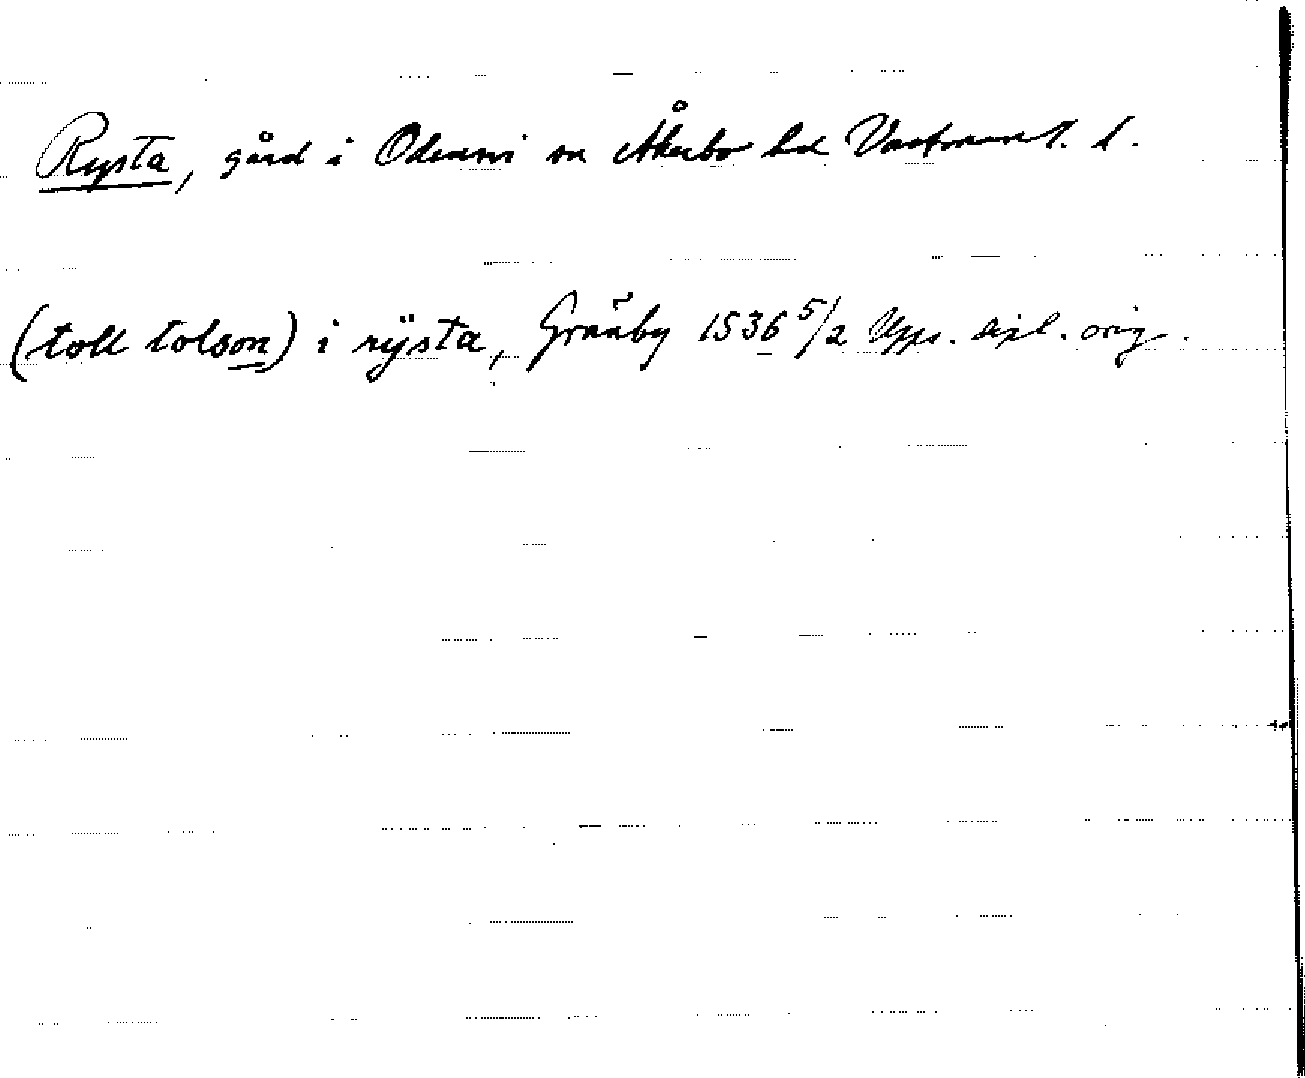 Rysta, gård i Odensvi sn Åkerbo hd Västmanl. l.
(toll tolson) i rÿsta, Gränby 1536 5/2 Upps. dipl. orig.